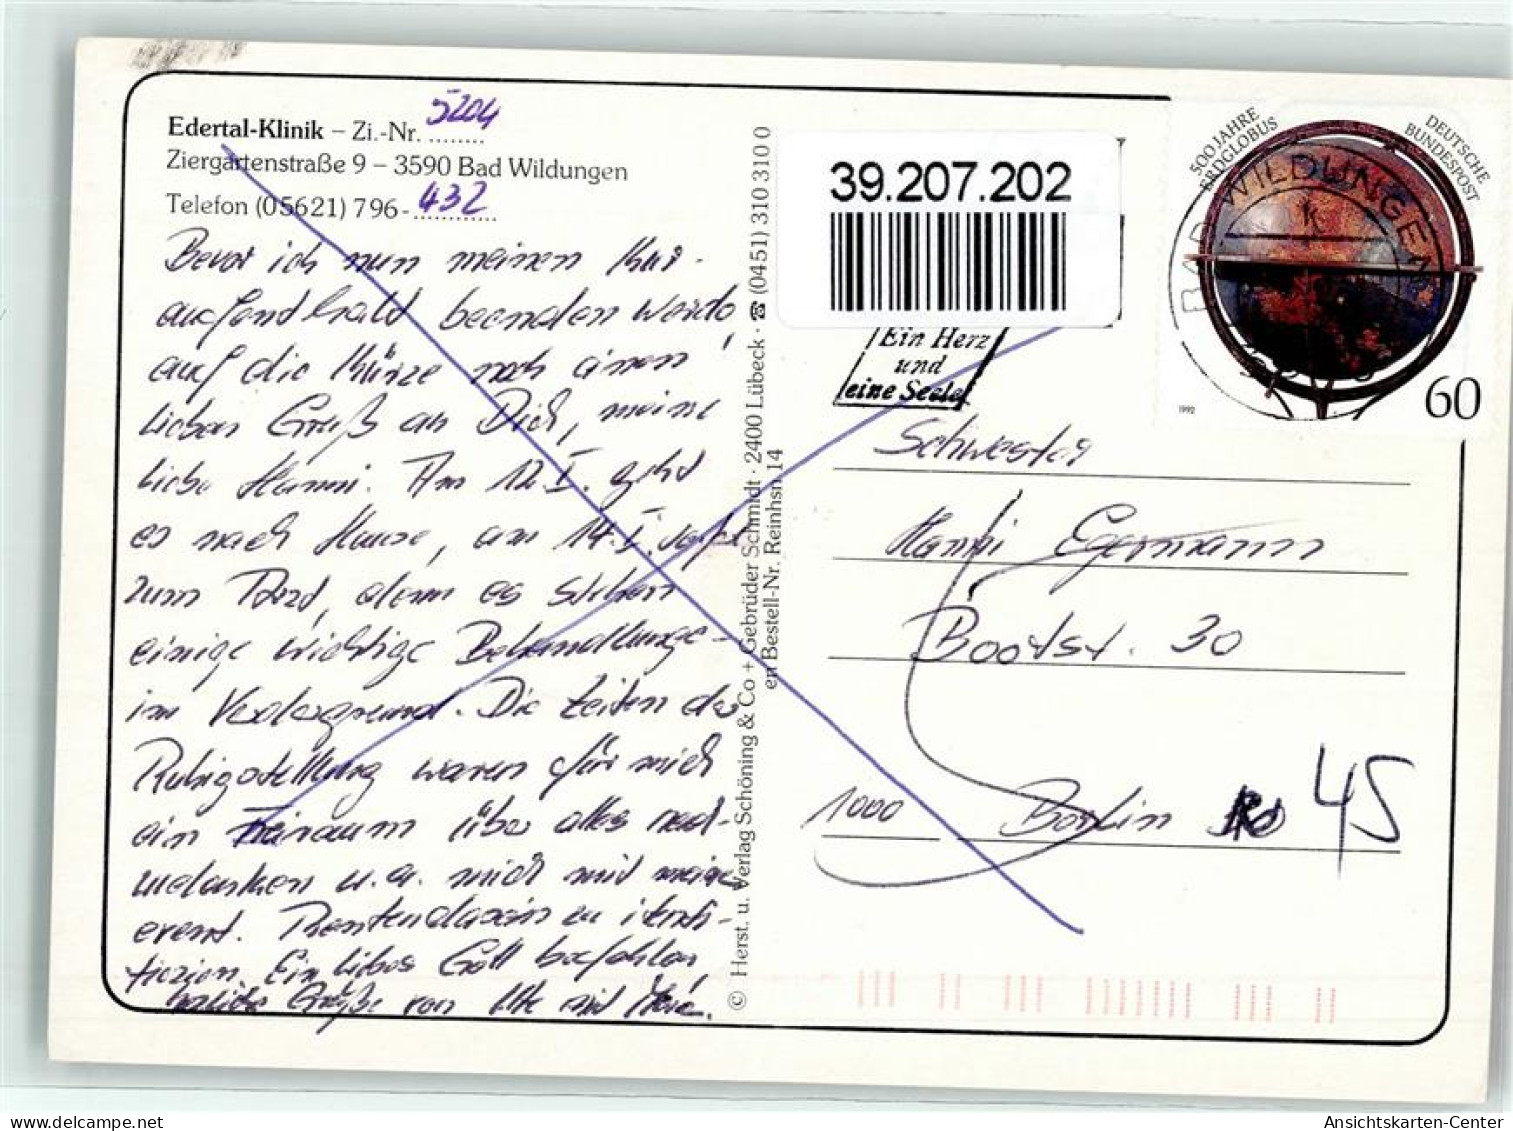 Edertal-Klinik – Zi.-Nr. 5204
Ziergartenstraße 9 – 3590 Bad Wildungen
Telefon (05621) 796- 432
Bevor ich nun meinen Kur-
aufenthalt beenden werde,
auf die Kürze noch einen
lieben Gruß an Dich, meine
liebe Hanni. Am 12.I. geht
es nach Hause, am 14.I.
zum Arzt, denn es stehen
einige wichtige Behandlunge-
im Vordergrund. Die Zeiten der
Ruhigstellung waren für mich
ein Freiraum über alles nach-
zudenken u. a. mich mit meine
erent. Rentendasein zu identi-
fizieren. Ein liebes Gott befohlen,
herzliche Grüße von Ute mit
© Herst. u. Verlag Schöning & Co + Gebrüder Schmidt · 2400 Lübeck · ☎ (0451) 310 310 0
en Bestell-Nr. Reinhsn 14
39.207.202
Ein Herz
und
eine Seele
500 JAHRE
ERDGLOBUS
DEUTSCHE
BUNDESPOST
BAD WILDUNGEN
1992
60
Schwester
Hanni Egermann
Bootsst. 30
1000 Berlin 45
AnsichtsKarten-Center